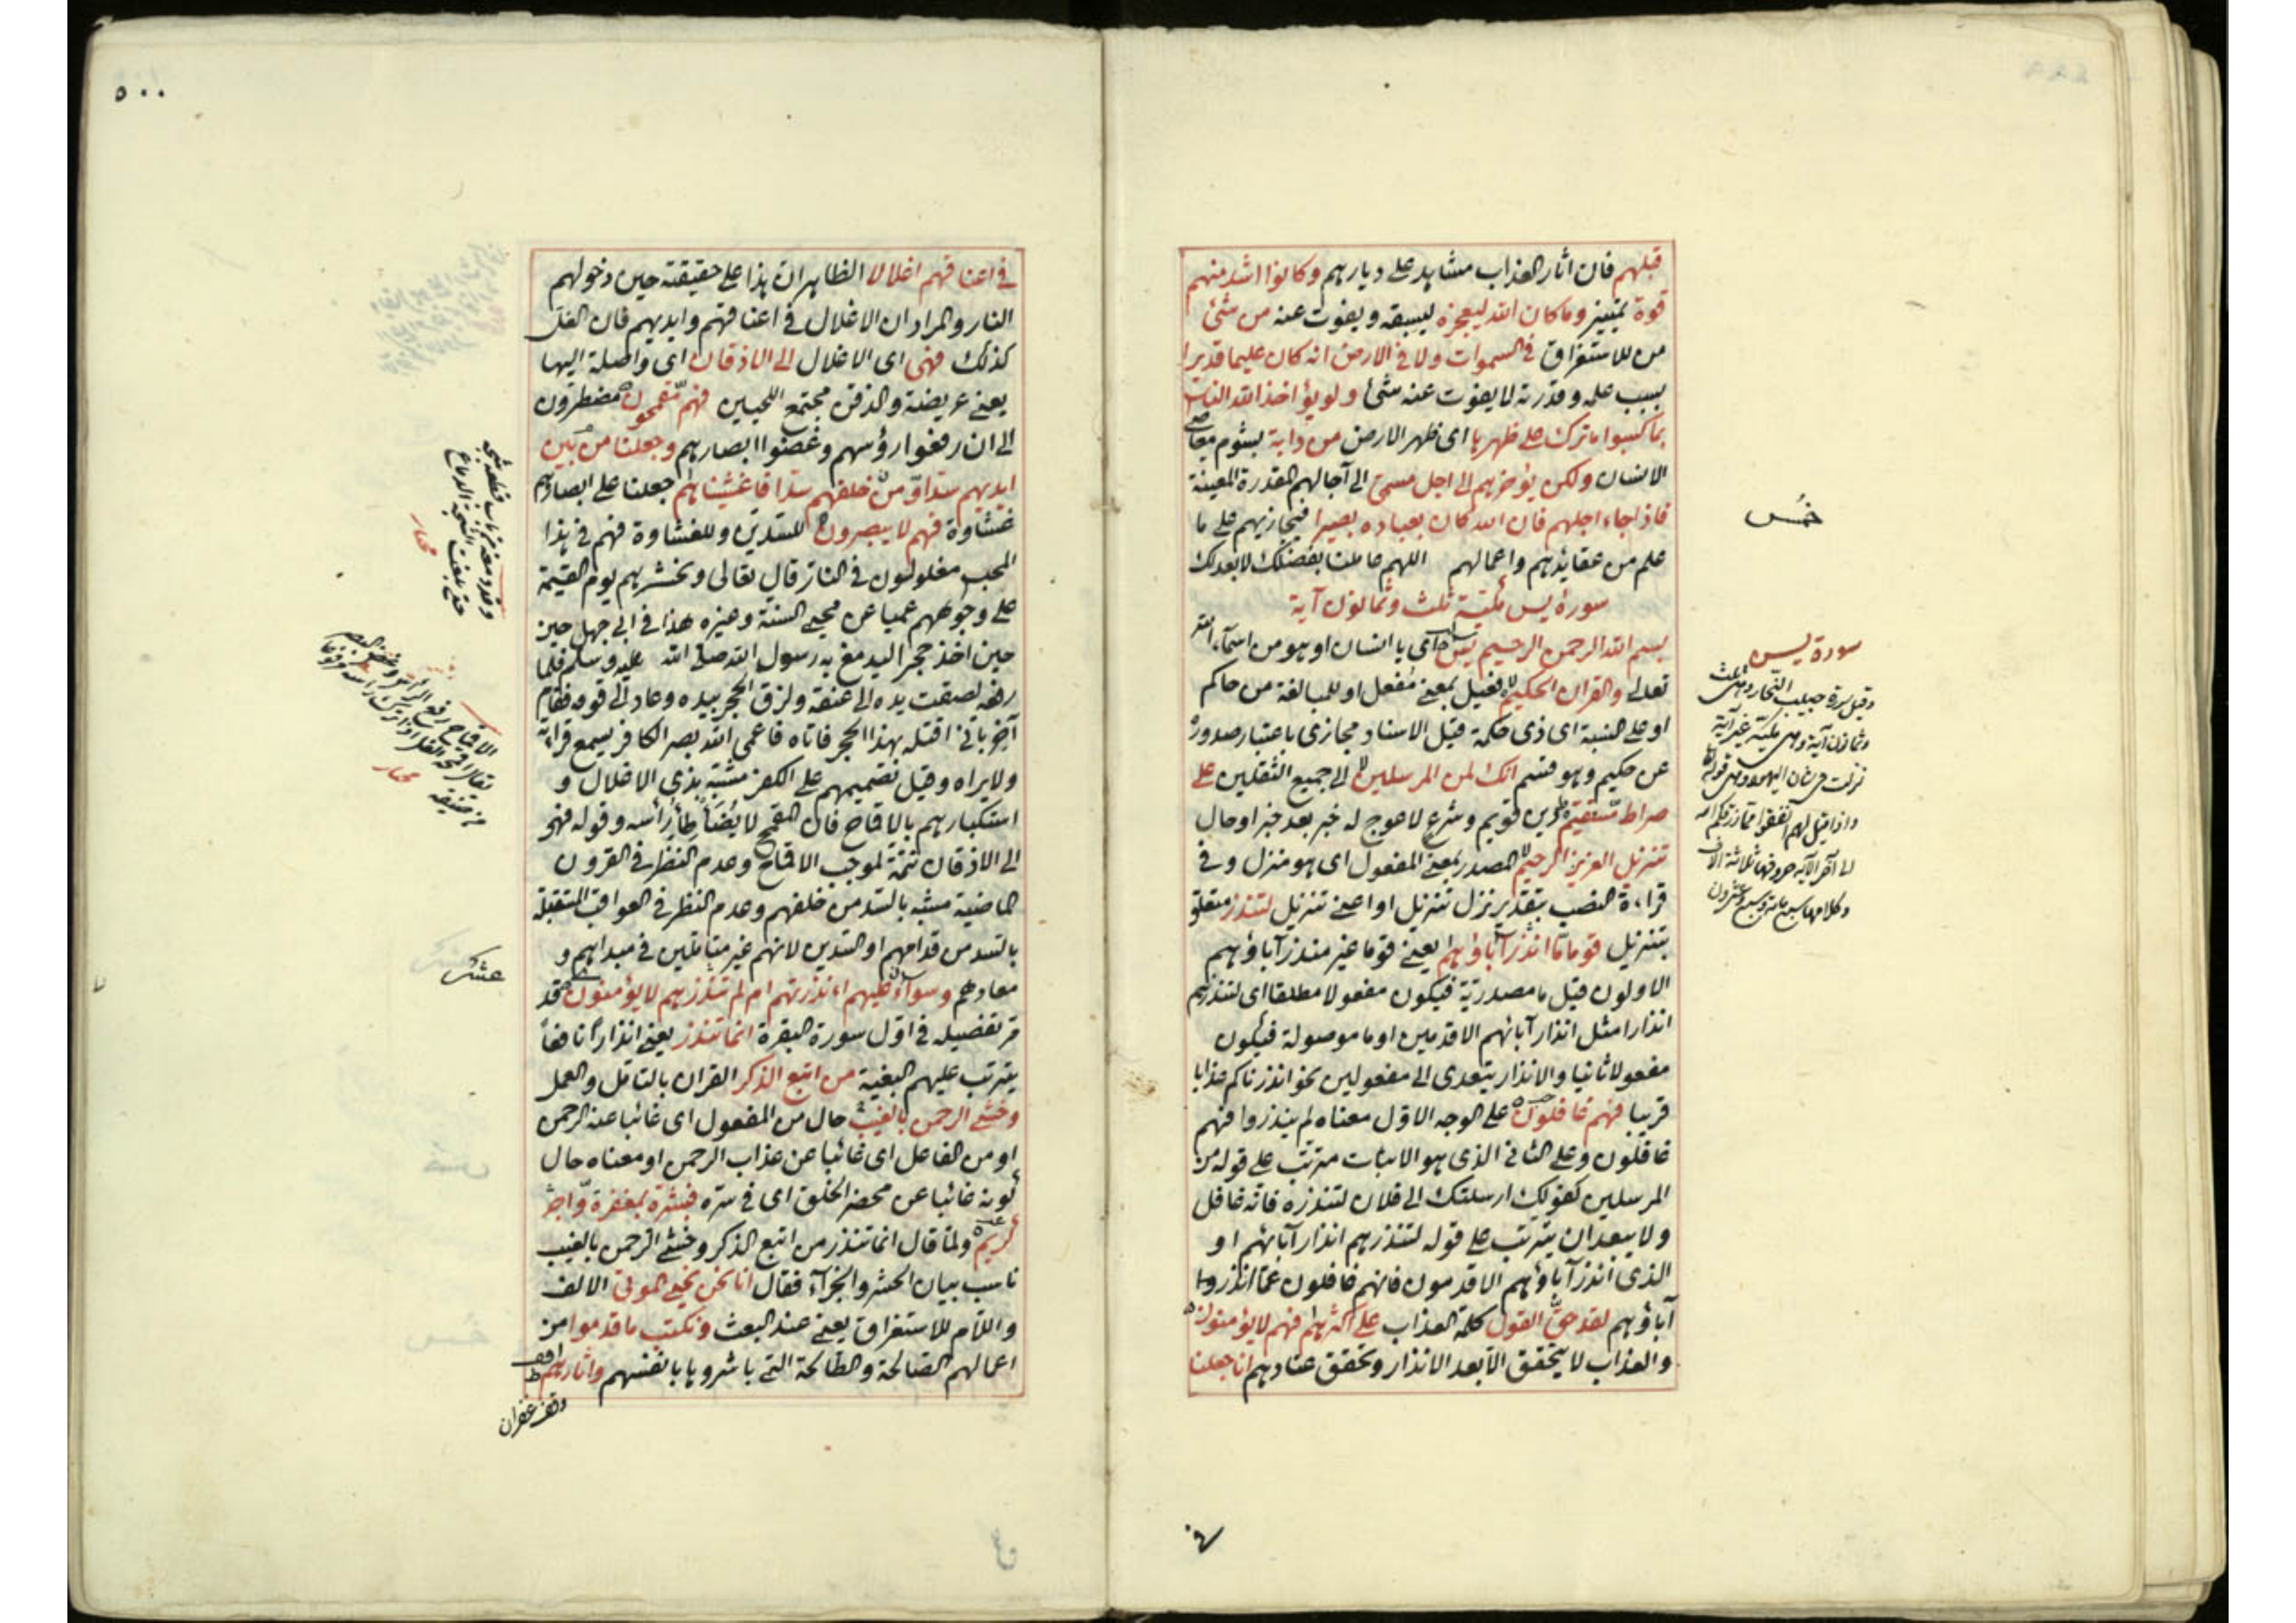 قبلهم فان اثار العذاب مشاهد على ديارهم وكانوا اشد منهم
قوة تمييز وما كان الله ليعجزه ليسبقه ويفوت عنه من شئ
من للاستغراق في السموات ولا في الارض انه كان عليما قديرا
بسبب علمه وقدرته لا يفوت عنه شئ ولو يؤاخذ الله الناس
بما كسبوا ما ترك على ظهرها اى ظهر الارض من دابة بشوم معاصى
الانسان ولكن يؤخرهم الى اجل مسمى الى آجالهم المقدرة المعينة
فاذا جاء اجلهم فان الله كان بعباده بصيرا فيجازيهم على ما
علم من عقائدهم واعمالهم اللهم عاملنا بفضلك لا بعدلك
خمس
سورة يس مكية ثلث وثمانون آية
بسم الله الرحمن الرحيم يس اى يا انسان او هو من اسماء الله
تعالى والقران الحكيم فعيل بمعنى مفعل او للمبالغة من حاكم
او على النسبة اى ذى حكمة قيل الاسناد مجازى باعتبار صدوره
عن حكيم وهو قسم انك لمن المرسلين الى جميع الثقلين على
صراط مستقيم دين قويم وشرع لا عوج له خبر بعد خبر او حال
تنزيل العزيز الرحيم المصدر بمعنى المفعول اى هو منزل وفى
قراءة النصب بتقدير نزل تنزيل او اعنى تنزيل لتنذر متعلق
بتنزيل قوما ما انذر آباؤهم يعنى قوما غير منذر آباؤهم
الاولون قيل ما مصدرية فيكون مفعولا مطلقا اى لتنذرهم
انذارا مثل انذار آبائهم الاقدمين او ما موصولة فيكون
مفعولا ثانيا والانذار يتعدى الى مفعولين نحو انذرناكم عذابا
قريبا فهم غافلون على الوجه الاول معناه لم ينذروا فهم
غافلون وعلى الثانى الذى هو الاثبات مترتب على قوله من
المرسلين كقولك ارسلتك الى فلان لتنذره فانه غافل
ولا يبعد ان يترتب على قوله لتنذرهم انذار آبائهم او
الذى انذر آباؤهم الاقدمون فانهم غافلون عما انذروا
آباؤهم لقد حق القول كلمة العذاب على اكثرهم فهم لا يؤمنون
والعذاب لا يتحقق الا بعد الانذار وتحقق عنادهم انا جعلنا
سورة يس
وقيل سورة حبيب النجار وهى ثلث
وثمانون آية وهى مكية غير آية
نزلت فى شان اليهود وهى قوله تعالى
واذا قيل لهم انفقوا مما رزقكم الله
الى آخر الآية حروفها ثلاثة آلاف
وكلامها سبع مائة وسبع وعشرون
٥٠٠
فى اعناقهم اغلالا الظاهر ان هذا على حقيقته حين دخولهم
النار والمراد ان الاغلال فى اعناقهم وايديهم فان الغل
كذلك فهى اى الاغلال الى الاذقان اى واصلة اليها
يعنى عريضة والذقن مجتمع اللحيين فهم مقمحون مضطرون
الى ان رفعوا رؤسهم وغضوا ابصارهم وجعلنا من بين
ايديهم سدا ومن خلفهم سدا فاغشيناهم جعلنا على ابصارهم
غشاوة فهم لا يبصرون للسدين وللغشاوة فهم فى هذا
المجب مغلولون فى النار قال تعالى ونحشرهم يوم القيمة
على وجوههم عميا عن محيى السنة وغيره هذا فى ابى جهل حين
حين اخذ حجر اليدمغ به رسول الله صلى الله عليه وسلم فلما
رفعه لصقت يده الى عنقه ولزق الحجر بيده وعاد الى قومه فقام
آخر بانى اقتله بهذا الحجر فاتاه فاعمى الله بصر الكافر يسمع قراءته
ولا يراه وقيل تصميمهم على الكفر مشبه بذى الاغلال و
استكبارهم بالاقماح فان المقمح لا يطأطأ رأسه وقوله فهى
الى الاذقان تتمة لموجب الاقماح وعدم النظر فى القرون
الماضية مشبه بالسد من خلفهم وعدم النظر فى العواقب المستقبلة
بالسد من قدامهم او السدين لانهم غير متأملين فى مبداهم و
معادهم وسواء عليهم ءانذرتهم ام لم تنذرهم لا يؤمنون قد
مر تفصيله فى اول سورة البقرة انما تنذر يعنى انذارا نافعا
يترتب عليهم البغية من اتبع الذكر القران بالتامل والعمل
وخشى الرحمن بالغيب حال من المفعول اى غائبا عنه الرحمن
او من الفاعل اى غائبا عن عذاب الرحمن او معناه حال
كونه غائبا عن محضر الخلق اى فى سره فبشره بمغفرة واجر
كريم ولما قال انما تنذر من اتبع الذكر وخشى الرحمن بالغيب
ناسب بيان الحشر والجزآء فقال انا نحن نحيى الموتى الالف
واللام للاستغراق يعنى عند البعث ونكتب ما قدموا من
اعمالهم الصالحة والطالحة التى باشروها بانفسهم واثارهم
وقف غفران
عشر
مختار
مختار